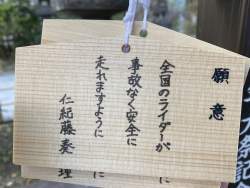 願意
全国のライダーが
事故なく安全に
走れますように
仁紀藤奏理